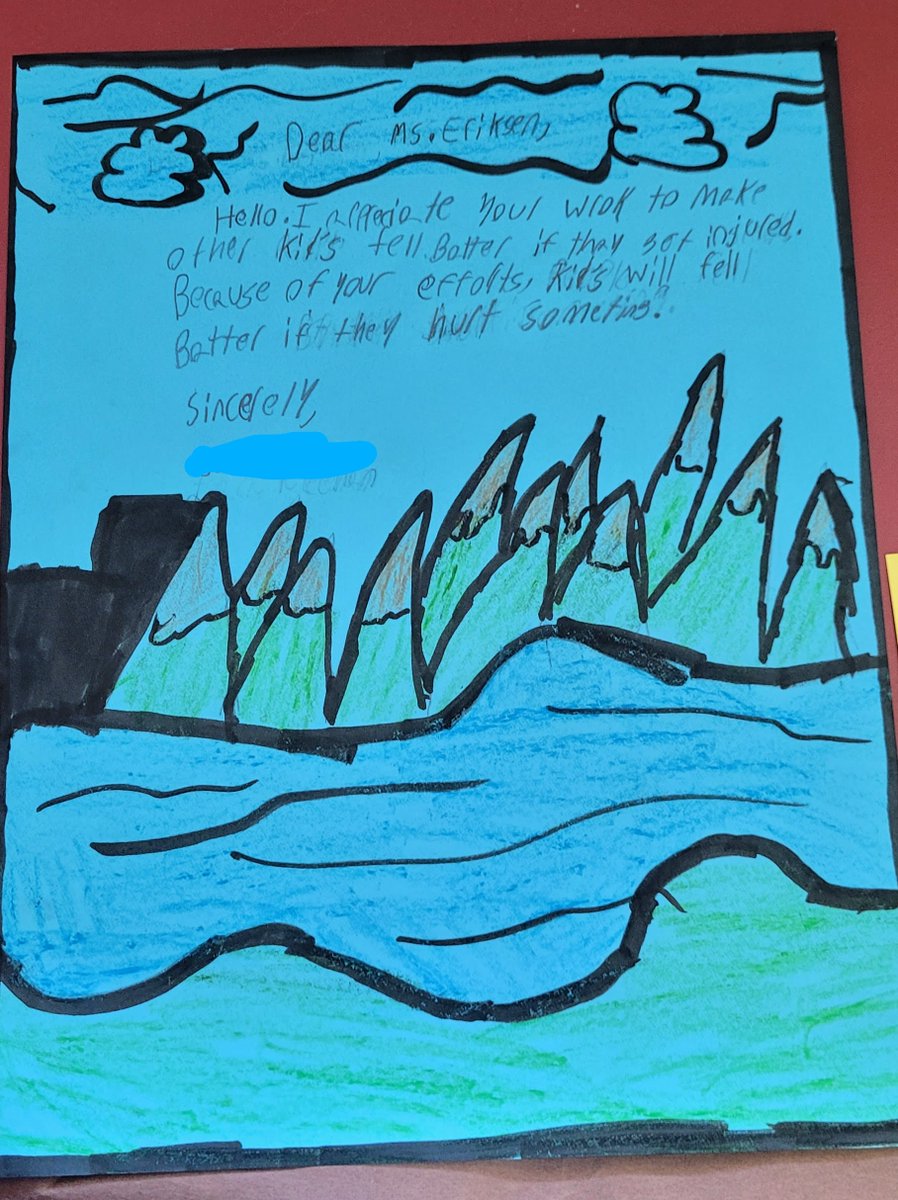 Dear Ms. Eriksen,
Hello. I appreciate your wrok to make
other kid's fell Batter if they got injured.
Because of your efforts, kid's will fell
Batter if they hurt someting.
Sincerely,